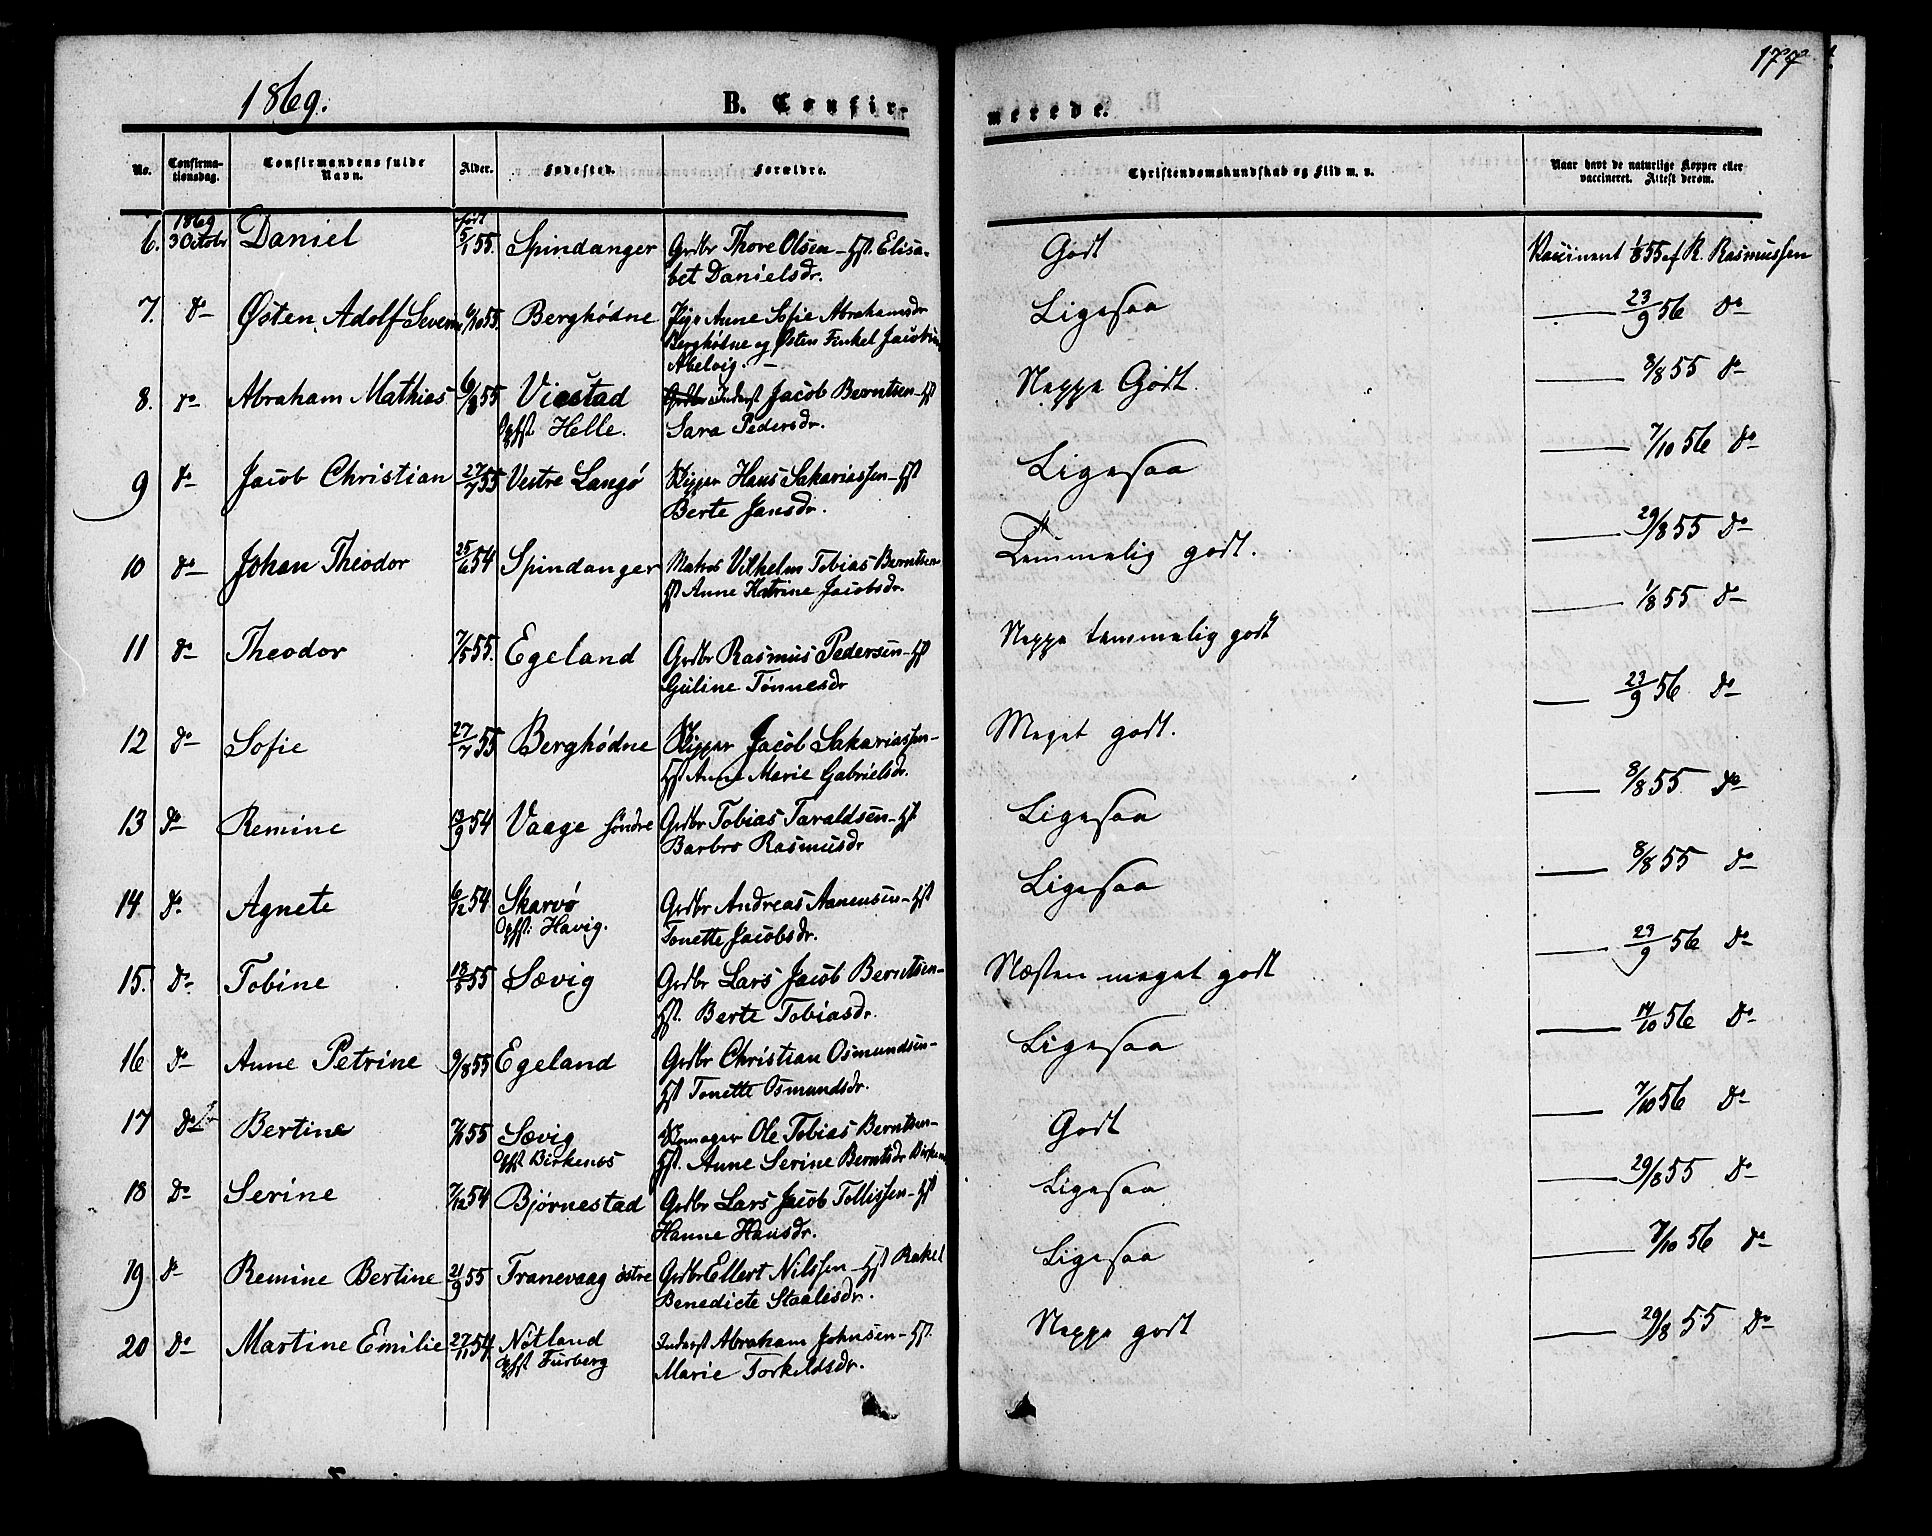 177
1869.
B. Confir-
merede.
No.
Confirma-
tionsdag.
Confirmandens fulde
Navn.
Alder.
Fødested.
Forældre.
Christendomskundskab og Flid m. v.
Naar havt de naturlige Kopper eller
vaccineret. Attest derom.
6. 1869 3 Octobr Daniel født 5/1 55. Spindanger Grdbr Thore Olsen - Hst. Elisa-
bet Danielsdr.
Godt
Vaccineret 1/8 55 af R. Rasmussen
7. do Østen Adolf Severin 6/10 55. Berghødne Pige Anne Sofie Abrahamsdr
Berghødne og Østen Finkel Jacobsen
Abelvig.
Ligesaa
23/9 56 do
8. do Abraham Mathias 6/9 55 Viestad Inderst Jacob Berntsen - Hst
Opfst Helle. Sara Pedersdr.
Neppe Godt.
8/8 55 do
9 do Jacob Christian 27/7 55 Vestre Langø Skipper Hans Sakariassen - Hst
Berte Jansdr.
Ligesaa
7/10 56 do
10 do Johan Theodor 25/6 54 Spindanger Matros Vilhelm Tobias Berntsen
Hst Anne Katrine Jacobsdr.
Temmelig godt.
29/8 55 do
11 do Theodor 7/5 55. Egeland Grdbr Rasmus Pedersen - Hst
Guline Tønnesdr
Neppe temmelig godt
1/8 55 do
12 do Sofie 27/7 55 Berghødne Skipper Jacob Sakariassen -
Hst Anne Marie Gabrielsdr.
Meget godt.
23/9 56 do
13 do Remine 13/9 54 Vaage søndre Grdbr Tobias Taraldsen - Hst.
Barbro Rasmusdr
Ligesaa
8/8 55 do
14. do. Agnete 6/12 54 Skarvø Grdbr Andreas Aanensen - Hst
Opfst: Havig. Tonette Jacobsdr.
Ligesaa
8/8 55 do
15. do. Tobine 18/5 55 Sævig Grdbr Lars Jacob Berntsen -
Hst. Berte Tobiasdr.
Næsten meget godt
23/9 56 do
16 do Anne Petrine 9/8 55 Egeland Grdbr Christian Osmundsen -
Hst Tonette Osmundsdr.
Ligesaa
14/10 56 do
17 do Bertine 55 Sævig Ole Tobias Berntsen -
Opfst Birkenes Hst. Anne Serine Berntsdr
Godt
7/10 56 do
18 do Serine 7/12 54 Bjørnestad Grdbr Lars Jacob Tollissen - Hst
Hanne Hansdr.
Ligesaa
29/8 55 do
19 do Remine Bertine 21/9 55 Tranevaag østre Grdbr Ellert Nilssen - Hst Rakel
Benedicte Staalesdr.
Ligesaa
7/10 56 do
20 do Martine Emilie 27/11 54 Nøtland Inderst Abraham Johnsen - Hst.
Opfst Furberg Marie Torkeldsdr.
Neppe godt
29/8 55 do